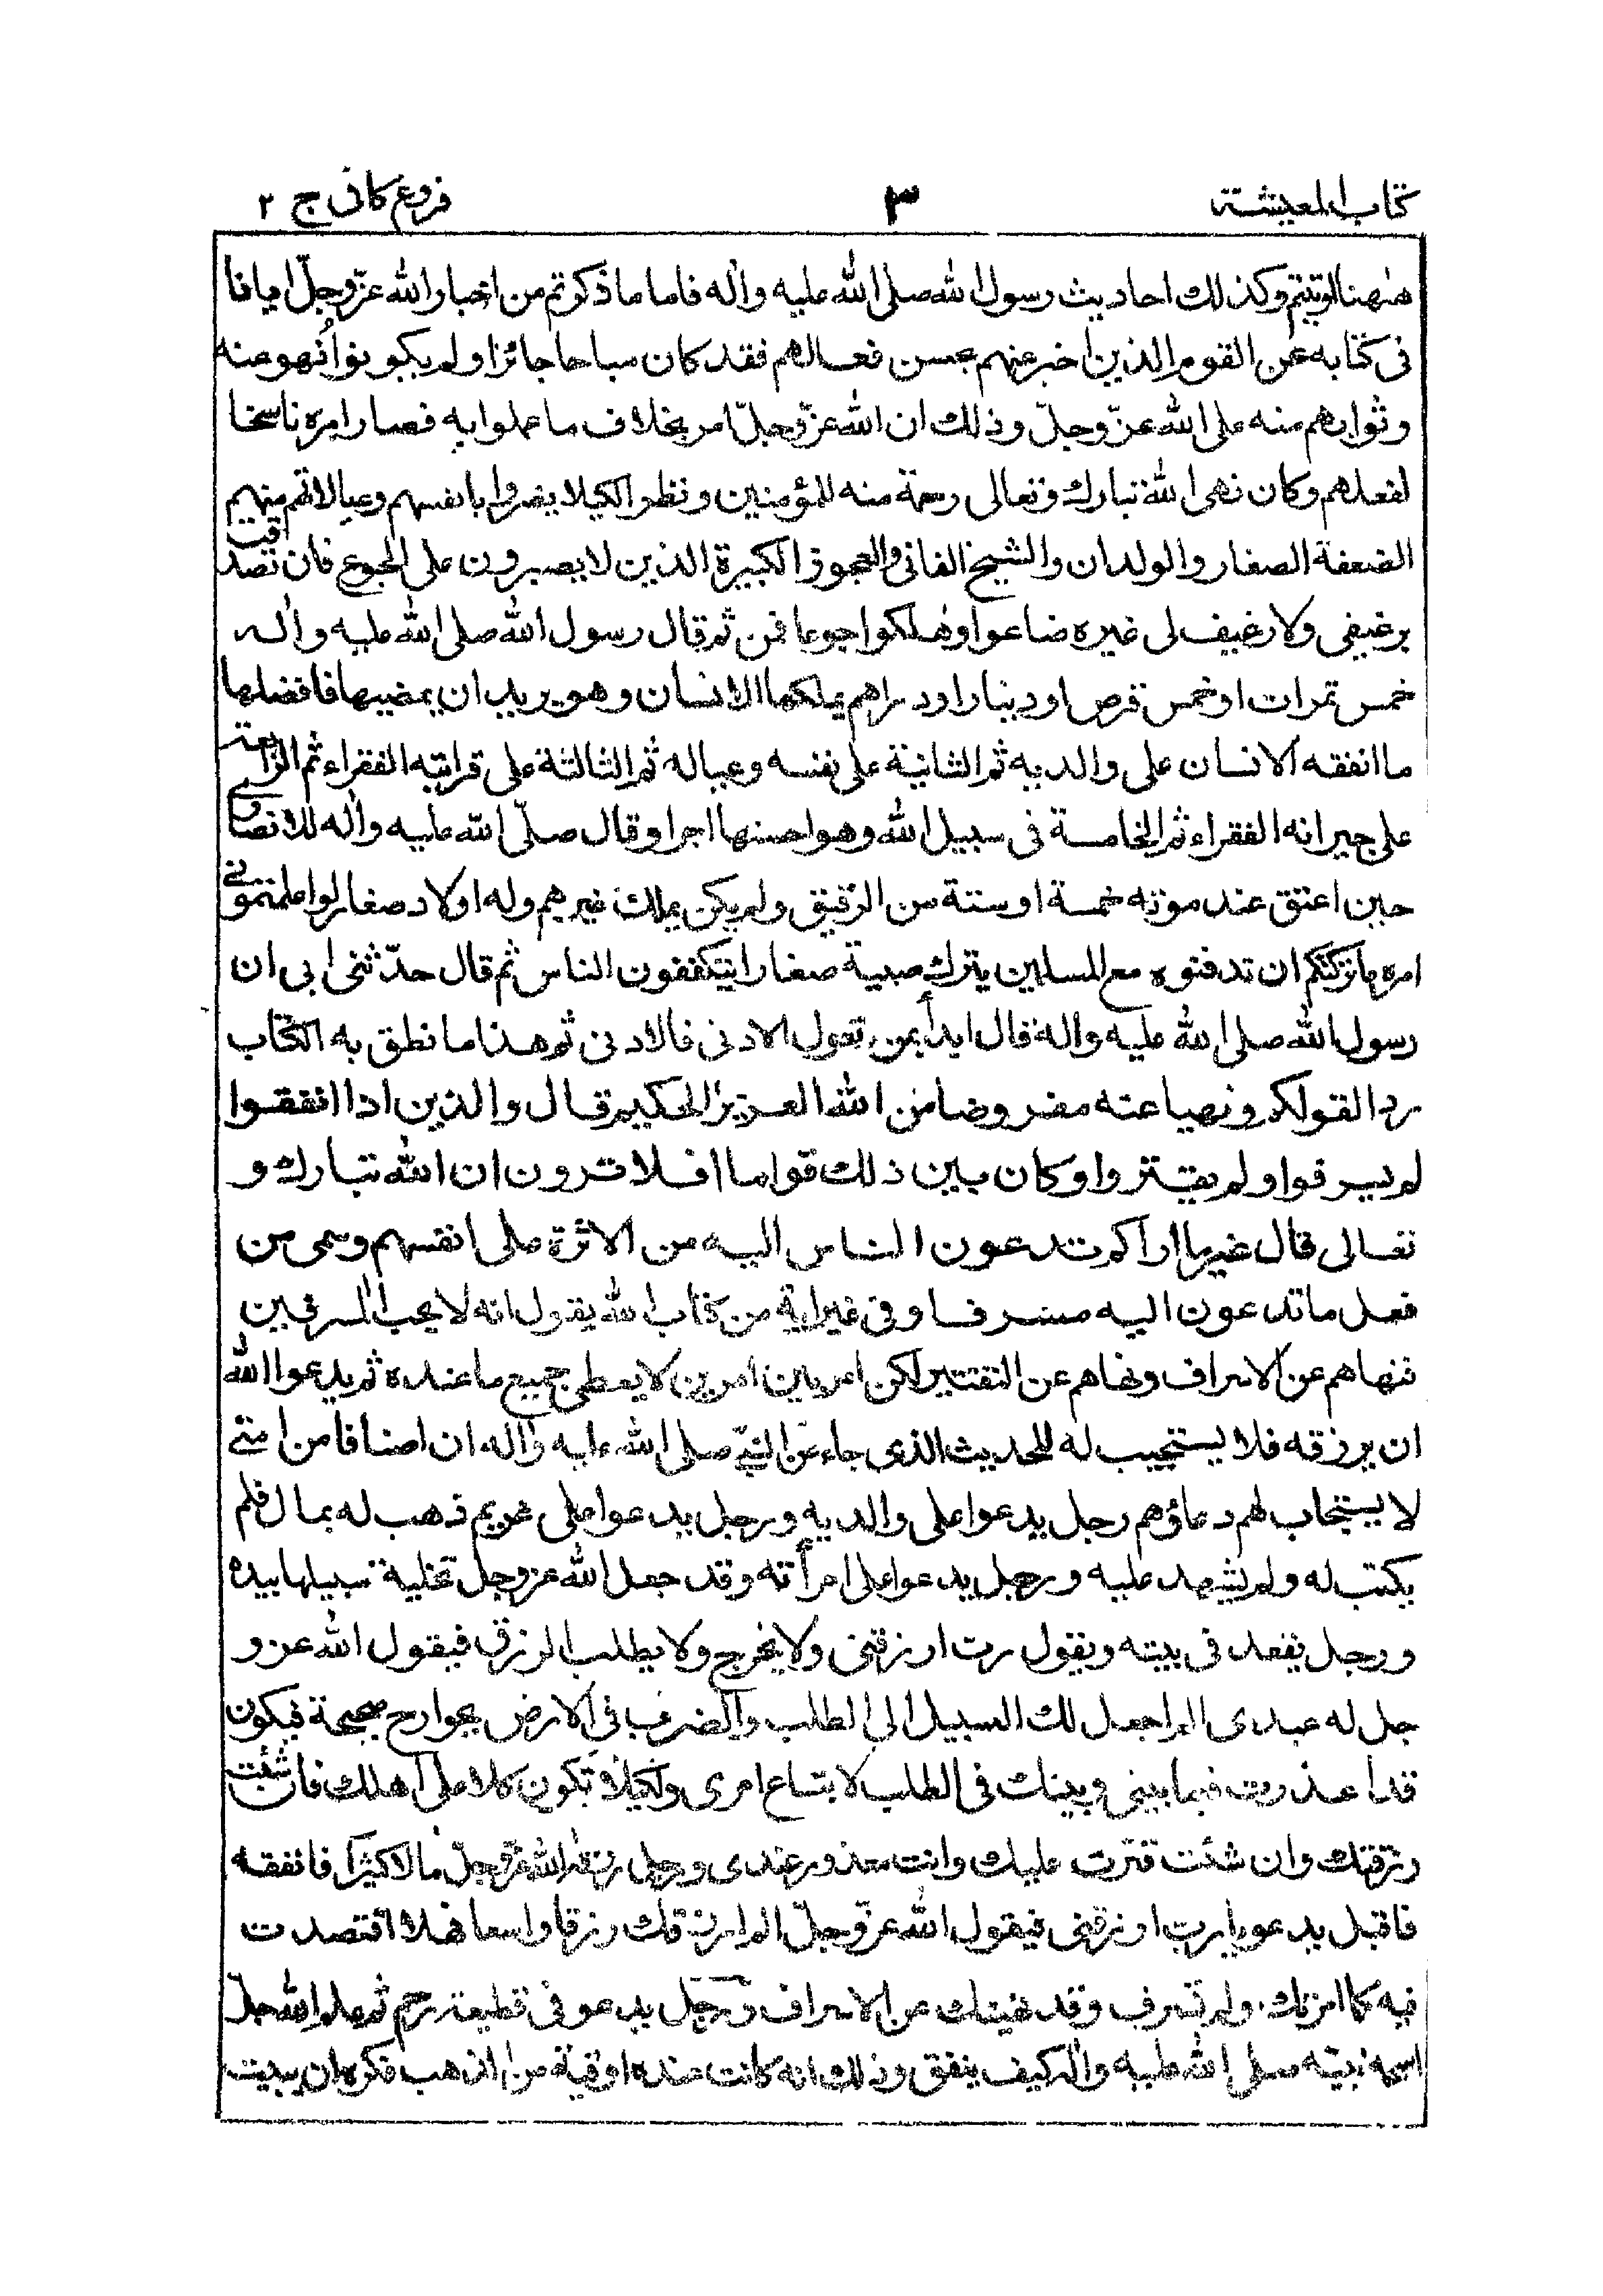 كتاب المعيشة ٣ فروع كافى ج ٢
هٰهنا اوتيتم وكذلك احاديث رسول الله صلى الله عليه واٰله فاما ما ذكرتم من اخبار الله عزّوجلّ ايانا
فى كتابه عن القوم الذين اخبر عنهم بحسن فعالهم فقد كان مباحا جائزا ولم يكونوا نُهوا عنه
وثوابهم منه على الله عزّ وجلّ وذلك ان الله عزّ وجلّ امر بخلاف ما عملوا به فصار امره ناسخا
لفعلهم وكان نهى الله تبارك وتعالى رحمة منه للمؤمنين ونظرا لكيلا يضروا بانفسهم وعيالاتهم منهم
الضعفة الصغار والولدان والشيخ الفانى والعجوز الكبيرة الذين لا يصبرون على الجوع فان تصدقت
برغيفى ولا رغيف لى غيره ضاعوا وهلكوا جوعا فمن ثم قال رسول الله صلى الله عليه واٰله
خمس تمرات او خمس قرص او دينار او دراهم يملكها الانسان وهو يريد ان يمضيها فافضلها
ما انفقه الانسان على والديه ثم الثانية على نفسه وعياله ثم الثالثة على قرابته الفقراء ثم الرابعة
على جيرانه الفقراء ثم الخامسة فى سبيل الله وهو اخسها اجرا وقال صلّى الله عليه واٰله للانصارى
حين اعتق عند موته خمسة او ستة من الرقيق ولم يكن يملك غيرهم وله اولاد صغار لو اعلمتمونى
امره ما تركتكم ان تدفنوه مع المسلمين يترك صبية صغارا يتكففون الناس ثم قال حدّثنى ابى ان
رسول الله صلى الله عليه واٰله قال ابدأ بمن تعول الادنى فالادنى ثم هذا ما نطق به الكتاب
ردا لقولكم ونهيا عنه مفروضا من الله العزيز الحكيم قال والذين اذا انفقوا
لم يسرفوا ولم يقتروا وكان بين ذلك قواما افلا ترون ان الله تبارك و
تعالى قال غير ما اراكم تدعون الناس اليه من الاثرة على انفسهم وسمى من
فعل ما تدعون اليه مسرفا وفى غير اية من كتاب الله يقول انه لا يحب المسرفين
فنهاهم عن الاسراف ونهاهم عن التقتير لكن امر بين امرين لا يعطى جميع ما عنده ثم يدعوا الله
ان يرزقه فلا يستجيب له للحديث الذى جاء عن النبىّ صلى الله عليه واٰله ان اصنافا من امتى
لا يستجاب لهم دعاؤهم رجل يدعوا على والديه ورجل يدعوا على غريم ذهب له بمال فلم
يكتب له ولم يشهد عليه ورجل يدعوا على امرأته وقد جعل الله عز وجل تخلية سبيلها بيده
ورجل يقعد فى بيته ويقول رب ارزقنى ولا يخرج ولا يطلب الرزق فيقول الله عز و
جل له عبدى الم اجعل لك السبيل الى الطلب والضرب فى الارض بجوارح صحيحة فيكون
قد اعذرت فيما بينى وبينك فى الطلب لاتباع امرى ولكيلا تكون كلا على اهلك فان شئت
رزقتك وان شئت قترت عليك وانت معذور عندى ورجل رزقه الله عزّوجلّ مالا كثيرا فانفقه
فاقبل يدعو يا رب ارزقنى فيقول الله عزّ وجلّ الم ارزقك رزقا واسعا فهلا اقتصدت
فيه كما امرتك ولم تسرف وقد نهيتك عن الاسراف ورجل يدعو فى قطيعة رحم ثم علم الله جلّ
اسمه نبيّه صلى الله عليه واٰله كيف ينفق وذلك انه كانت عنده اوقية من الذهب فكره ان يبيت